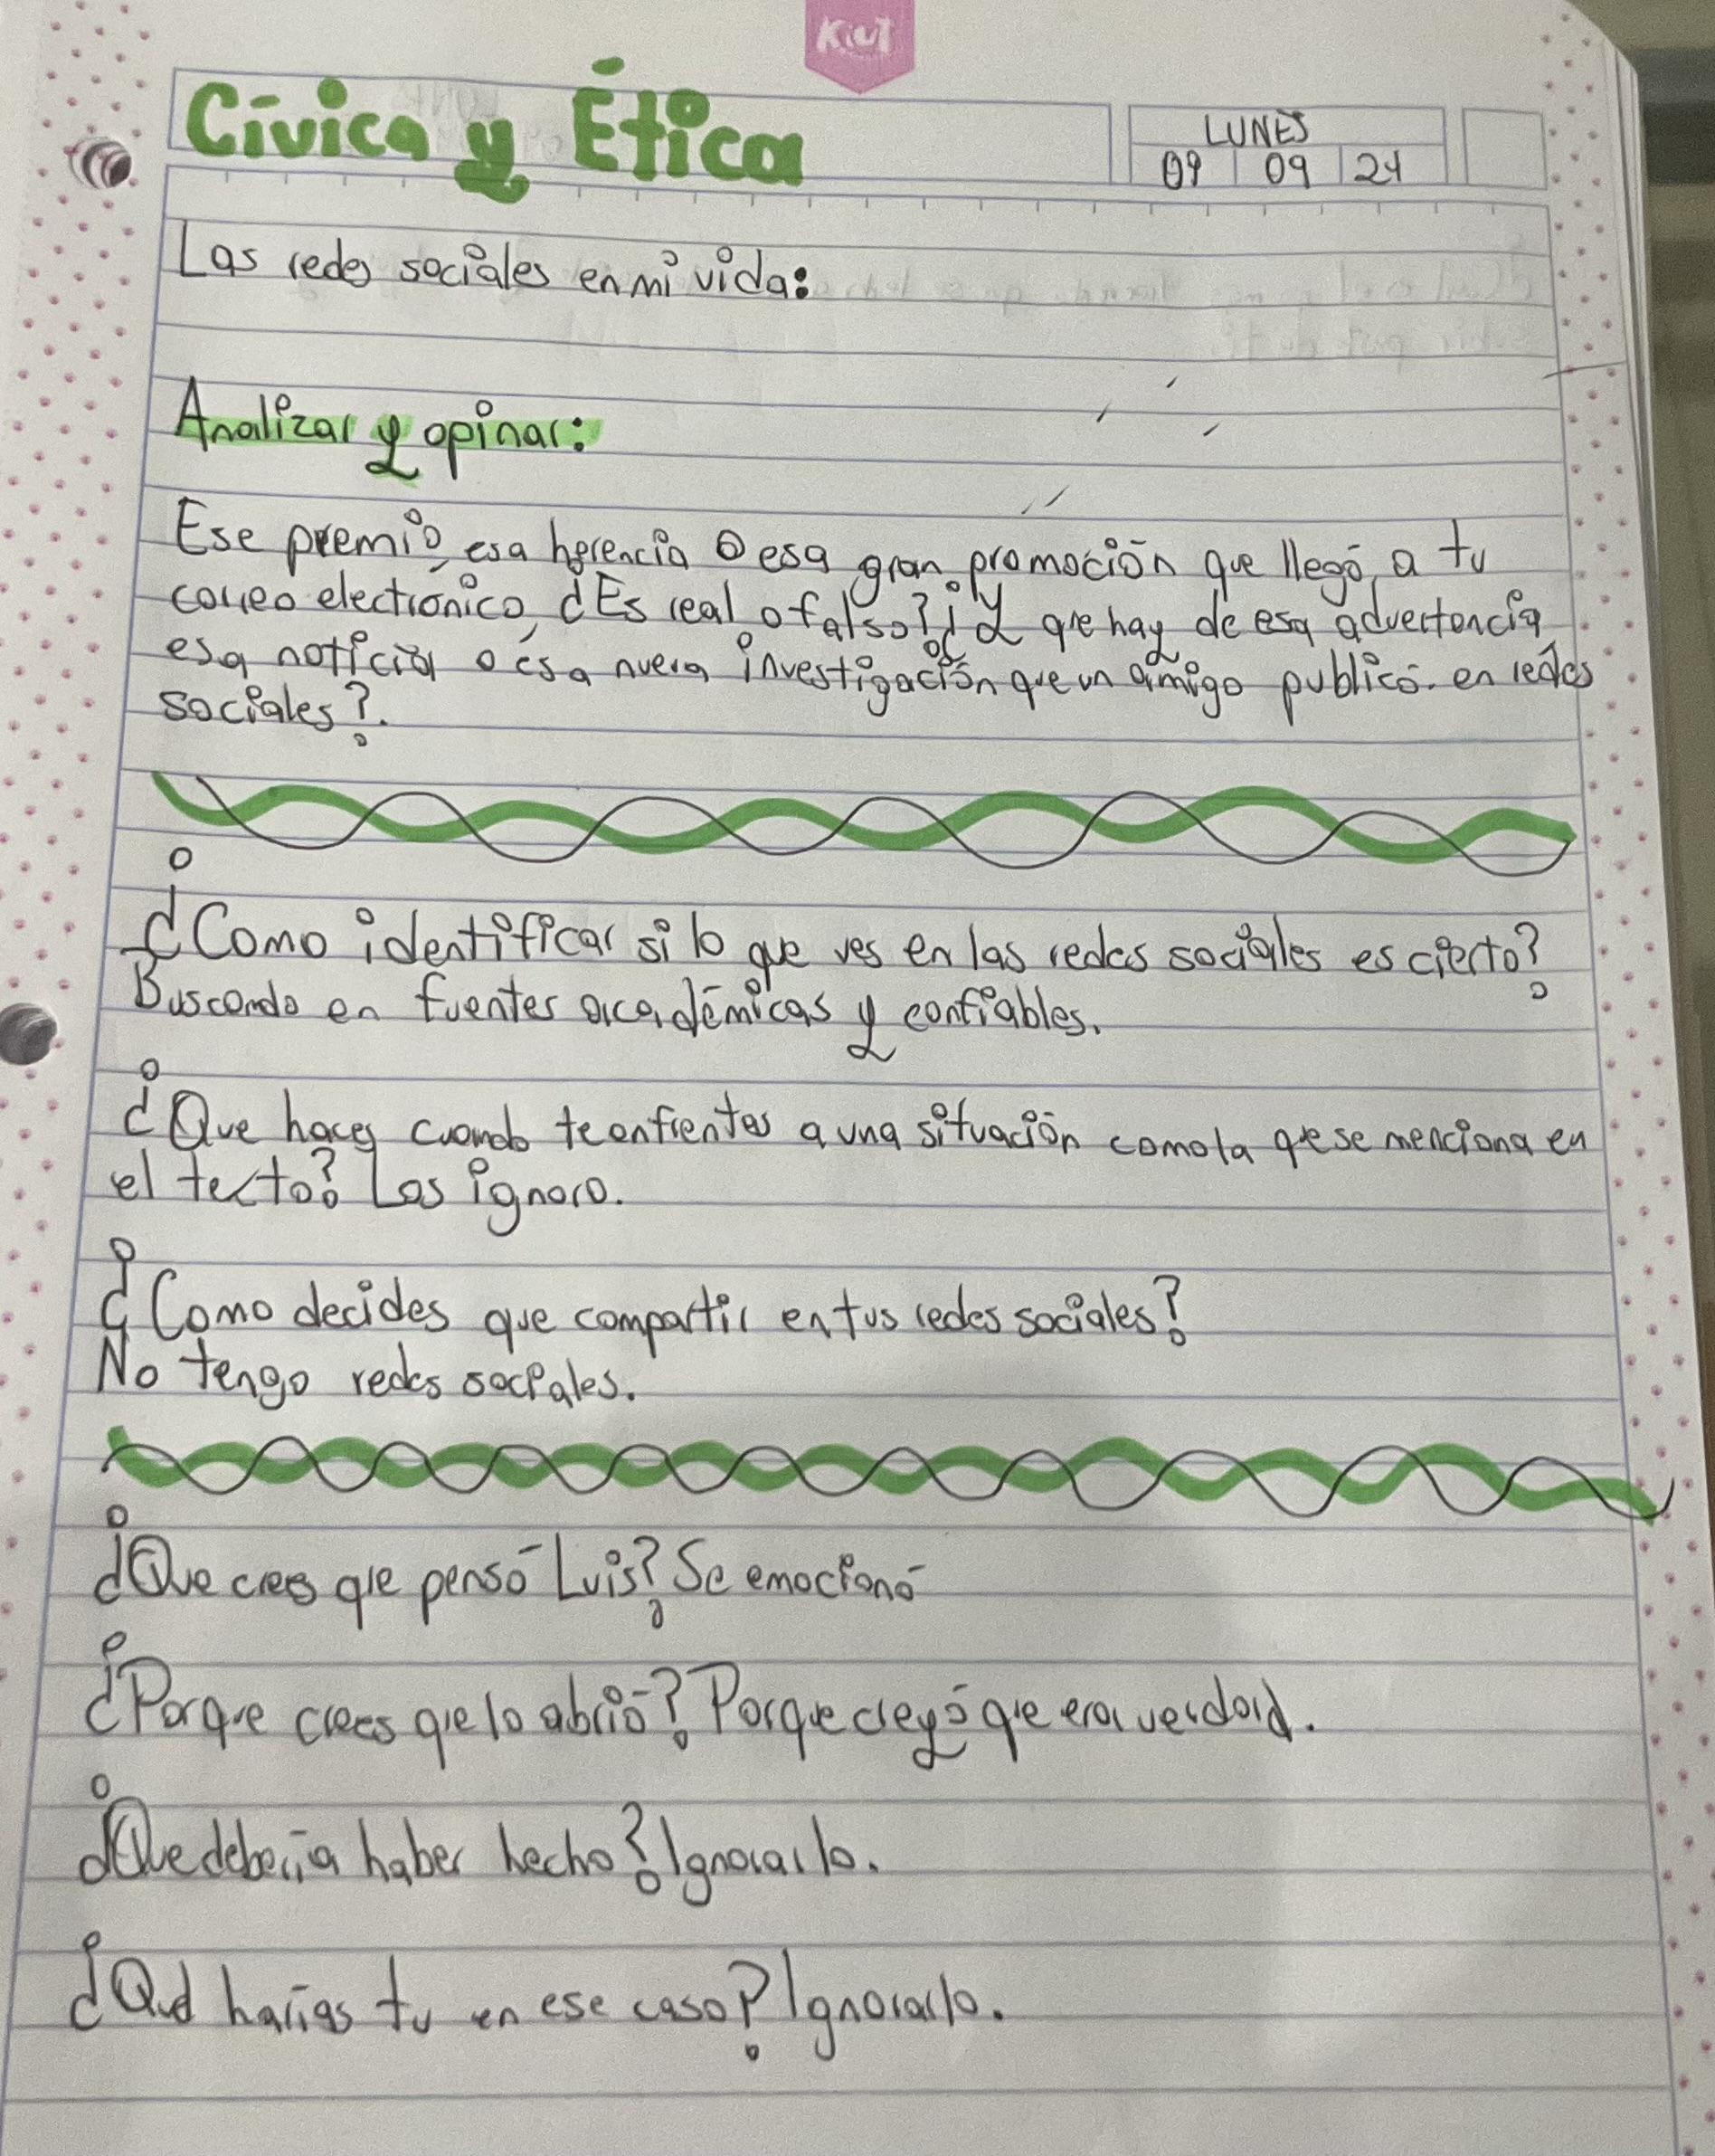 Kiut
Cívica y Ética
LUNES
09 09 24
Las redes sociales en mi vida:
Analizar y opinar:
Ese premio, esa herencia o esa gran promoción que llegó a tu
correo electrónico, ¿Es real o falso? ¿Y que hay de esa advertencia,
esa noticia o esa nueva investigación que un amigo publicó en redes
sociales?.
¿Como identificar si lo que ves en las redes sociales es cierto?
Buscando en fuentes académicas y confiables.
¿Que haces cuando te enfrentas a una situación como la que se menciona en
el texto? Las ignoro.
¿Como decides que compartir en tus redes sociales?
No tengo redes sociales.
¿Que crees que pensó Luis? Se emocionó
¿Porque crees que lo abrió? Porque creyó que era verdad.
¿Que debería haber hecho? Ignorarlo.
¿Qué harías tu en ese caso? Ignorarlo.